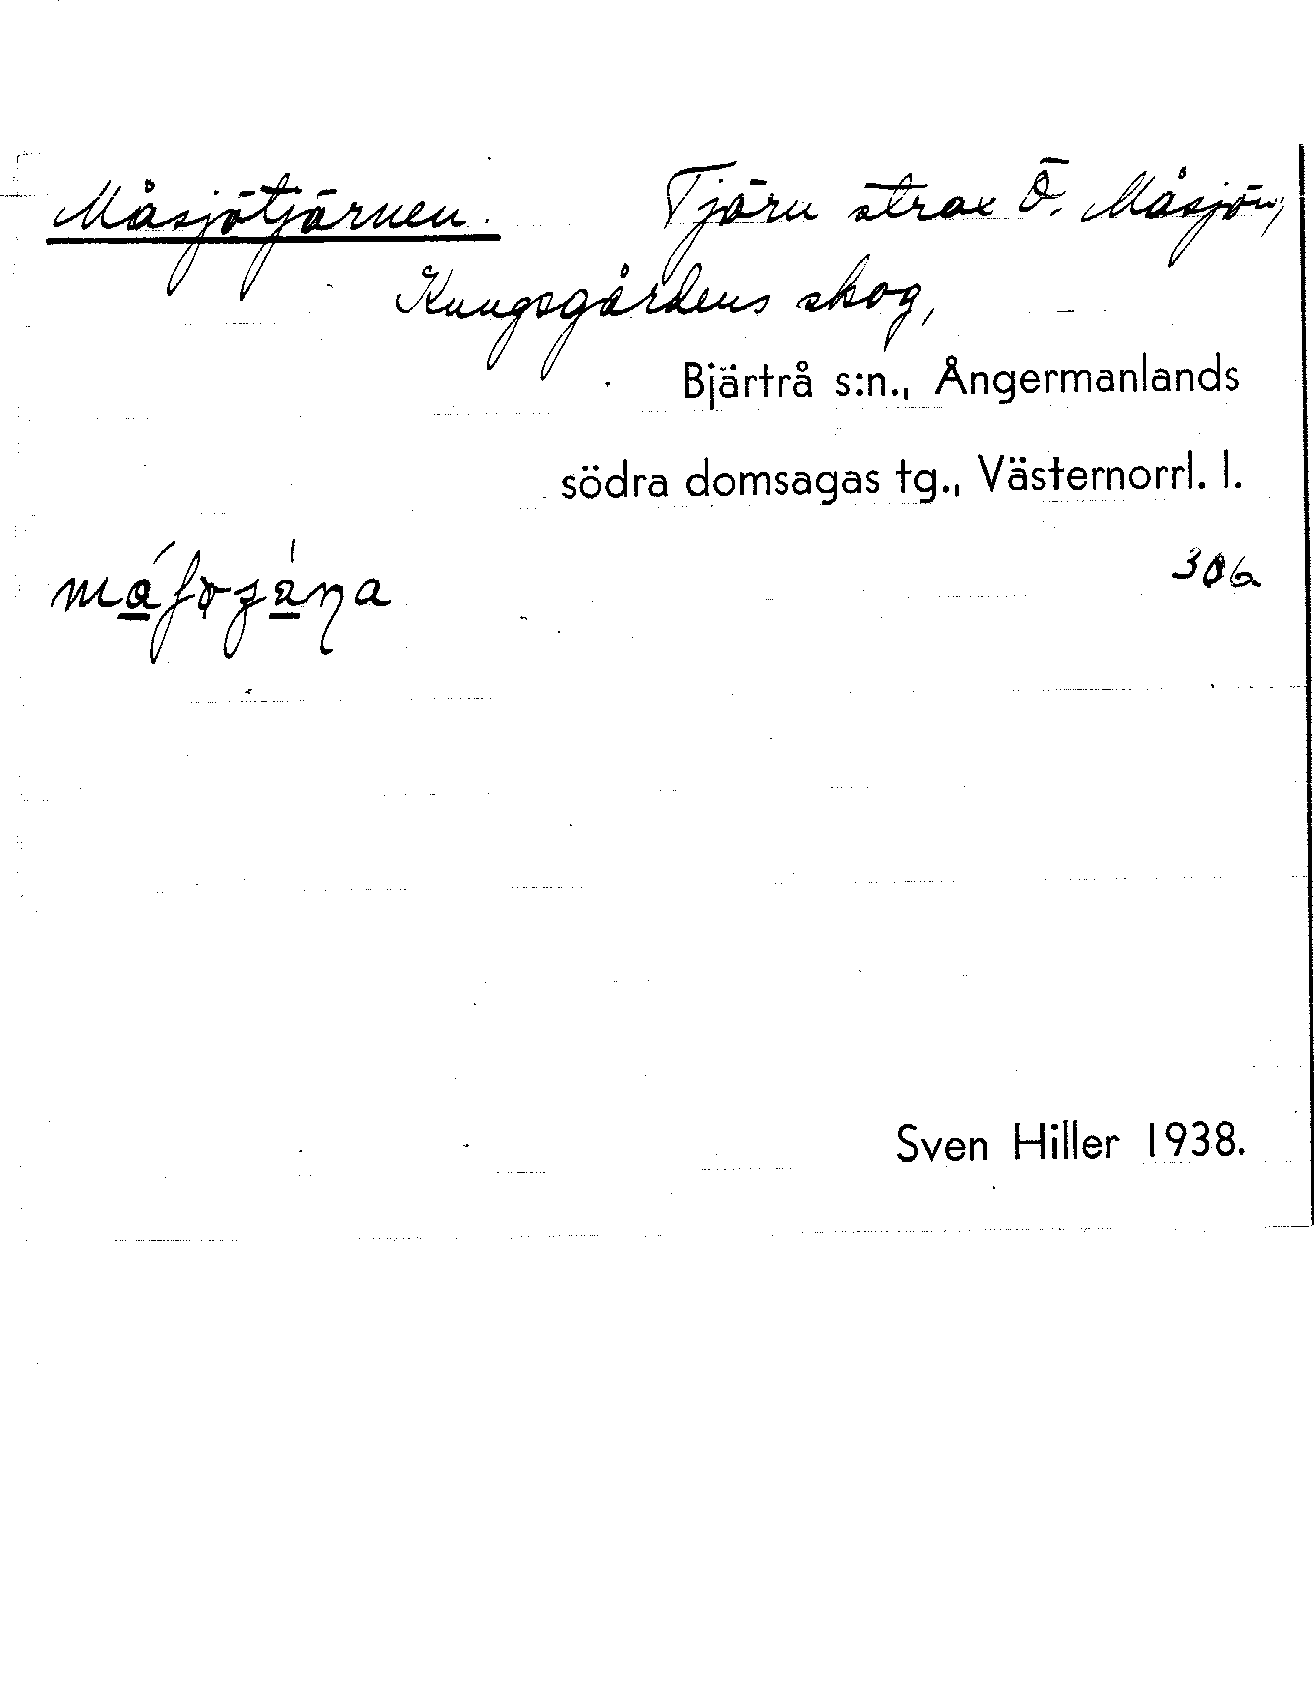 Måsjötjärnen. Tjärn strax Ö. Måsjön,
Kungsgårdens skog,
Bjärtrå s:n., Ångermanlands
södra domsagas tg., Västernorrl. l.
306
Sven Hiller 1938.